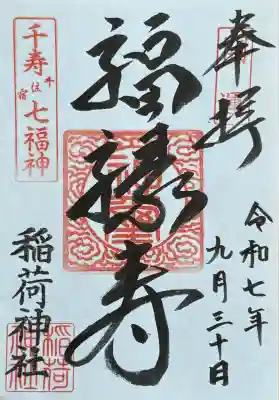 奉拝
令和七年
九月三十日
福禄寿
千寿七福神
千住宿
稲荷神社
稲荷神社